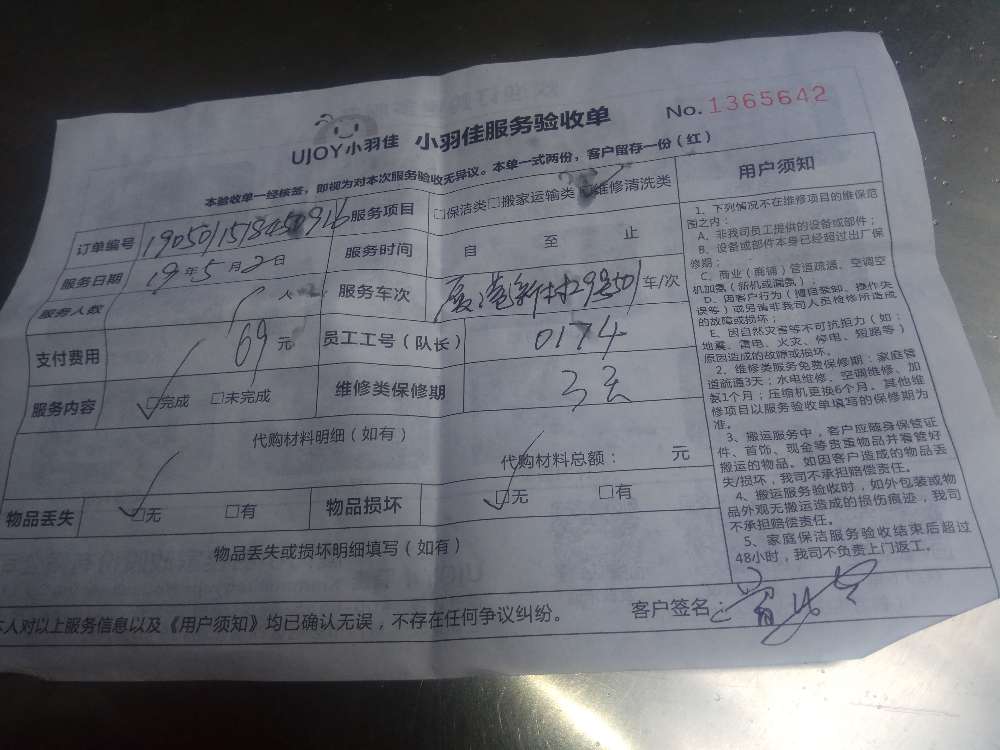 UJOY小羽佳 小羽佳服务验收单 No.1365642
本验收单一经核签，即视为对本次服务验收无异议。本单一式两份，客户留存一份（红）
订单编号 服务项目 □保洁类□搬家运输类 维修清洗类
服务日期 19年5月2日 服务时间 自 至 止
服务人数 人 服务车次 车/次
支付费用 69元 员工工号（队长） 0174
服务内容 □完成 □未完成 维修类保修期 3天
代购材料明细（如有）
代购材料总额： 元
物品丢失 □无 □有 物品损坏 □无 □有
物品丢失或损坏明细填写（如有）
本人对以上服务信息以及《用户须知》均已确认无误，不存在任何争议纠纷。 客户签名：
用户须知
1、下列情况不在维修项目的维保范
围之内：
A、非我司员工提供的设备或部件；
B、设备或部件本身已经超过出厂保
修期；
C、商业（商铺）管道疏通、空调空
机加氨（新机或漏氨）；
D、因客户行为（擅自装卸、操作失
误等）或另请非我司人员检修所造成
的故障或损坏；
E、因自然灾害等不可抗拒力（如：
地震、雷电、火灾、停电、短路等）
原因造成的故障或损坏。
2、维修类服务免费保修期：家庭管
道疏通3天；水电维修、空调维修、加
氨1个月；压缩机更换6个月。其他维
修项目以服务验收单填写的保修期为
准。
3、搬运服务中，客户应随身保管证
件、首饰、现金等贵重物品并看管好
搬运的物品。如因客户造成的物品丢
失/损坏，我司不承担赔偿责任。
4、搬运服务验收时，如外包装或物
品外观无搬运造成的损伤痕迹，我司
不承担赔偿责任。
5、家庭保洁服务验收结束后超过
48小时，我司不负责上门返工。